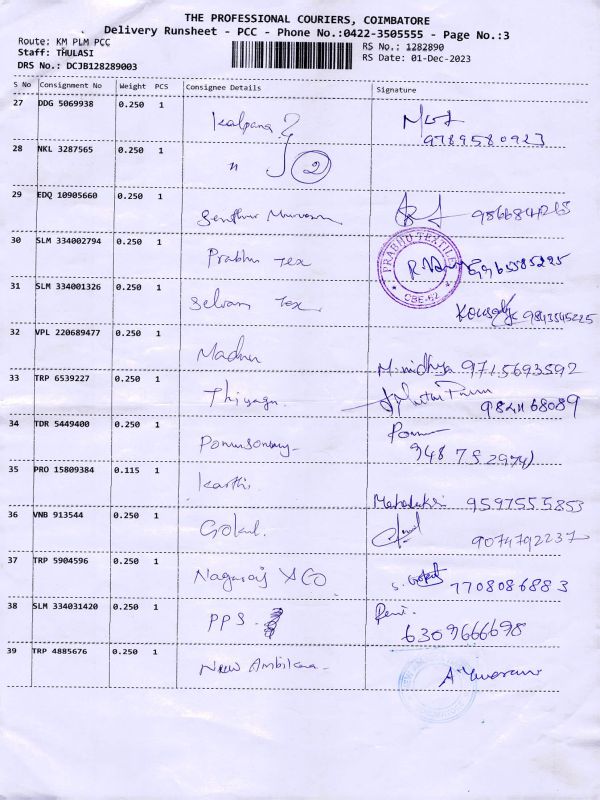 THE PROFESSIONAL COURIERS, COIMBATORE
Delivery Runsheet - PCC - Phone No.:0422-3505555 - Page No.:3
Route: KM PLM PCC
RS No.: 1282890
Staff: THULASI
RS Date: 01-Dec-2023
DRS No.: DCJB128289003
S No Consignment No Weight PCS Consignee Details Signature
27 DDG 5069938 0.250 1 Kalpana
9789580923
28 NKL 3287565 0.250 1 " 2
29 EDQ 10905660 0.250 1 Senthur Murugan
30 SLM 334002794 0.250 1 Prabhu Tex
PRABHU TEXTILES
CBE-62
31 SLM 334001326 0.250 1 Selvam Tex
9843545225
32 VPL 220689477 0.250 1 Madhu M. nidhya 9715693592
33 TRP 6539227 0.250 1 Thiyagu
34 TDR 5449400 0.250 1
35 PRO 15809384 0.115 1 Karthi Mahalakshmi 9597555853
36 VNB 913544 0.250 1 Gokul 9074792237
37 TRP 5904596 0.250 1 Nagaraj &CO 7708086883
38 SLM 334031420 0.250 1 PPS
6309666698
39 TRP 4885676 0.250 1 New Ambika